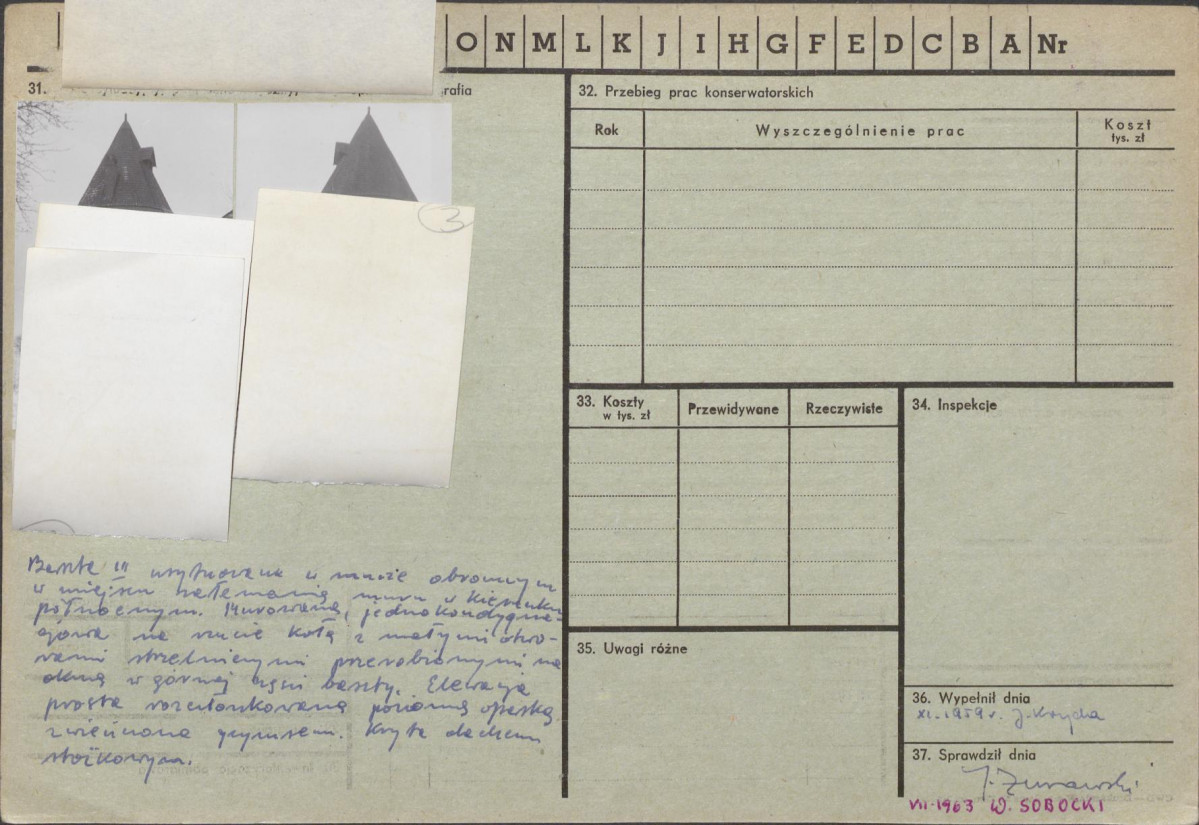 O N M L K J I H G F E D C B A Nr
31.
rafia
3
32. Przebieg prac konserwatorskich
Rok
Wyszczególnienie prac
Koszt
tys. zł
33. Koszty
w tys. zł
Przewidywane
Rzeczywiste
34. Inspekcje
35. Uwagi różne
36. Wypełnił dnia
XI. 1959 r. J. Krzycha
37. Sprawdził dnia
J. Żurawski
VII-1963 W. SOBOCKI
Baszta III usytuowana w murze obronnym
w miejscu załamania muru w kierunku
północnym. Murowana, jednokondygna-
cjowa na rzucie koła z małymi otwo-
rami strzelniczymi przerobionymi na
okna w górnej części baszty. Elewacja
prosta rozczłonkowana poziomą opaską
zwieńczona gzymsem. Kryta dachem
stożkowym.